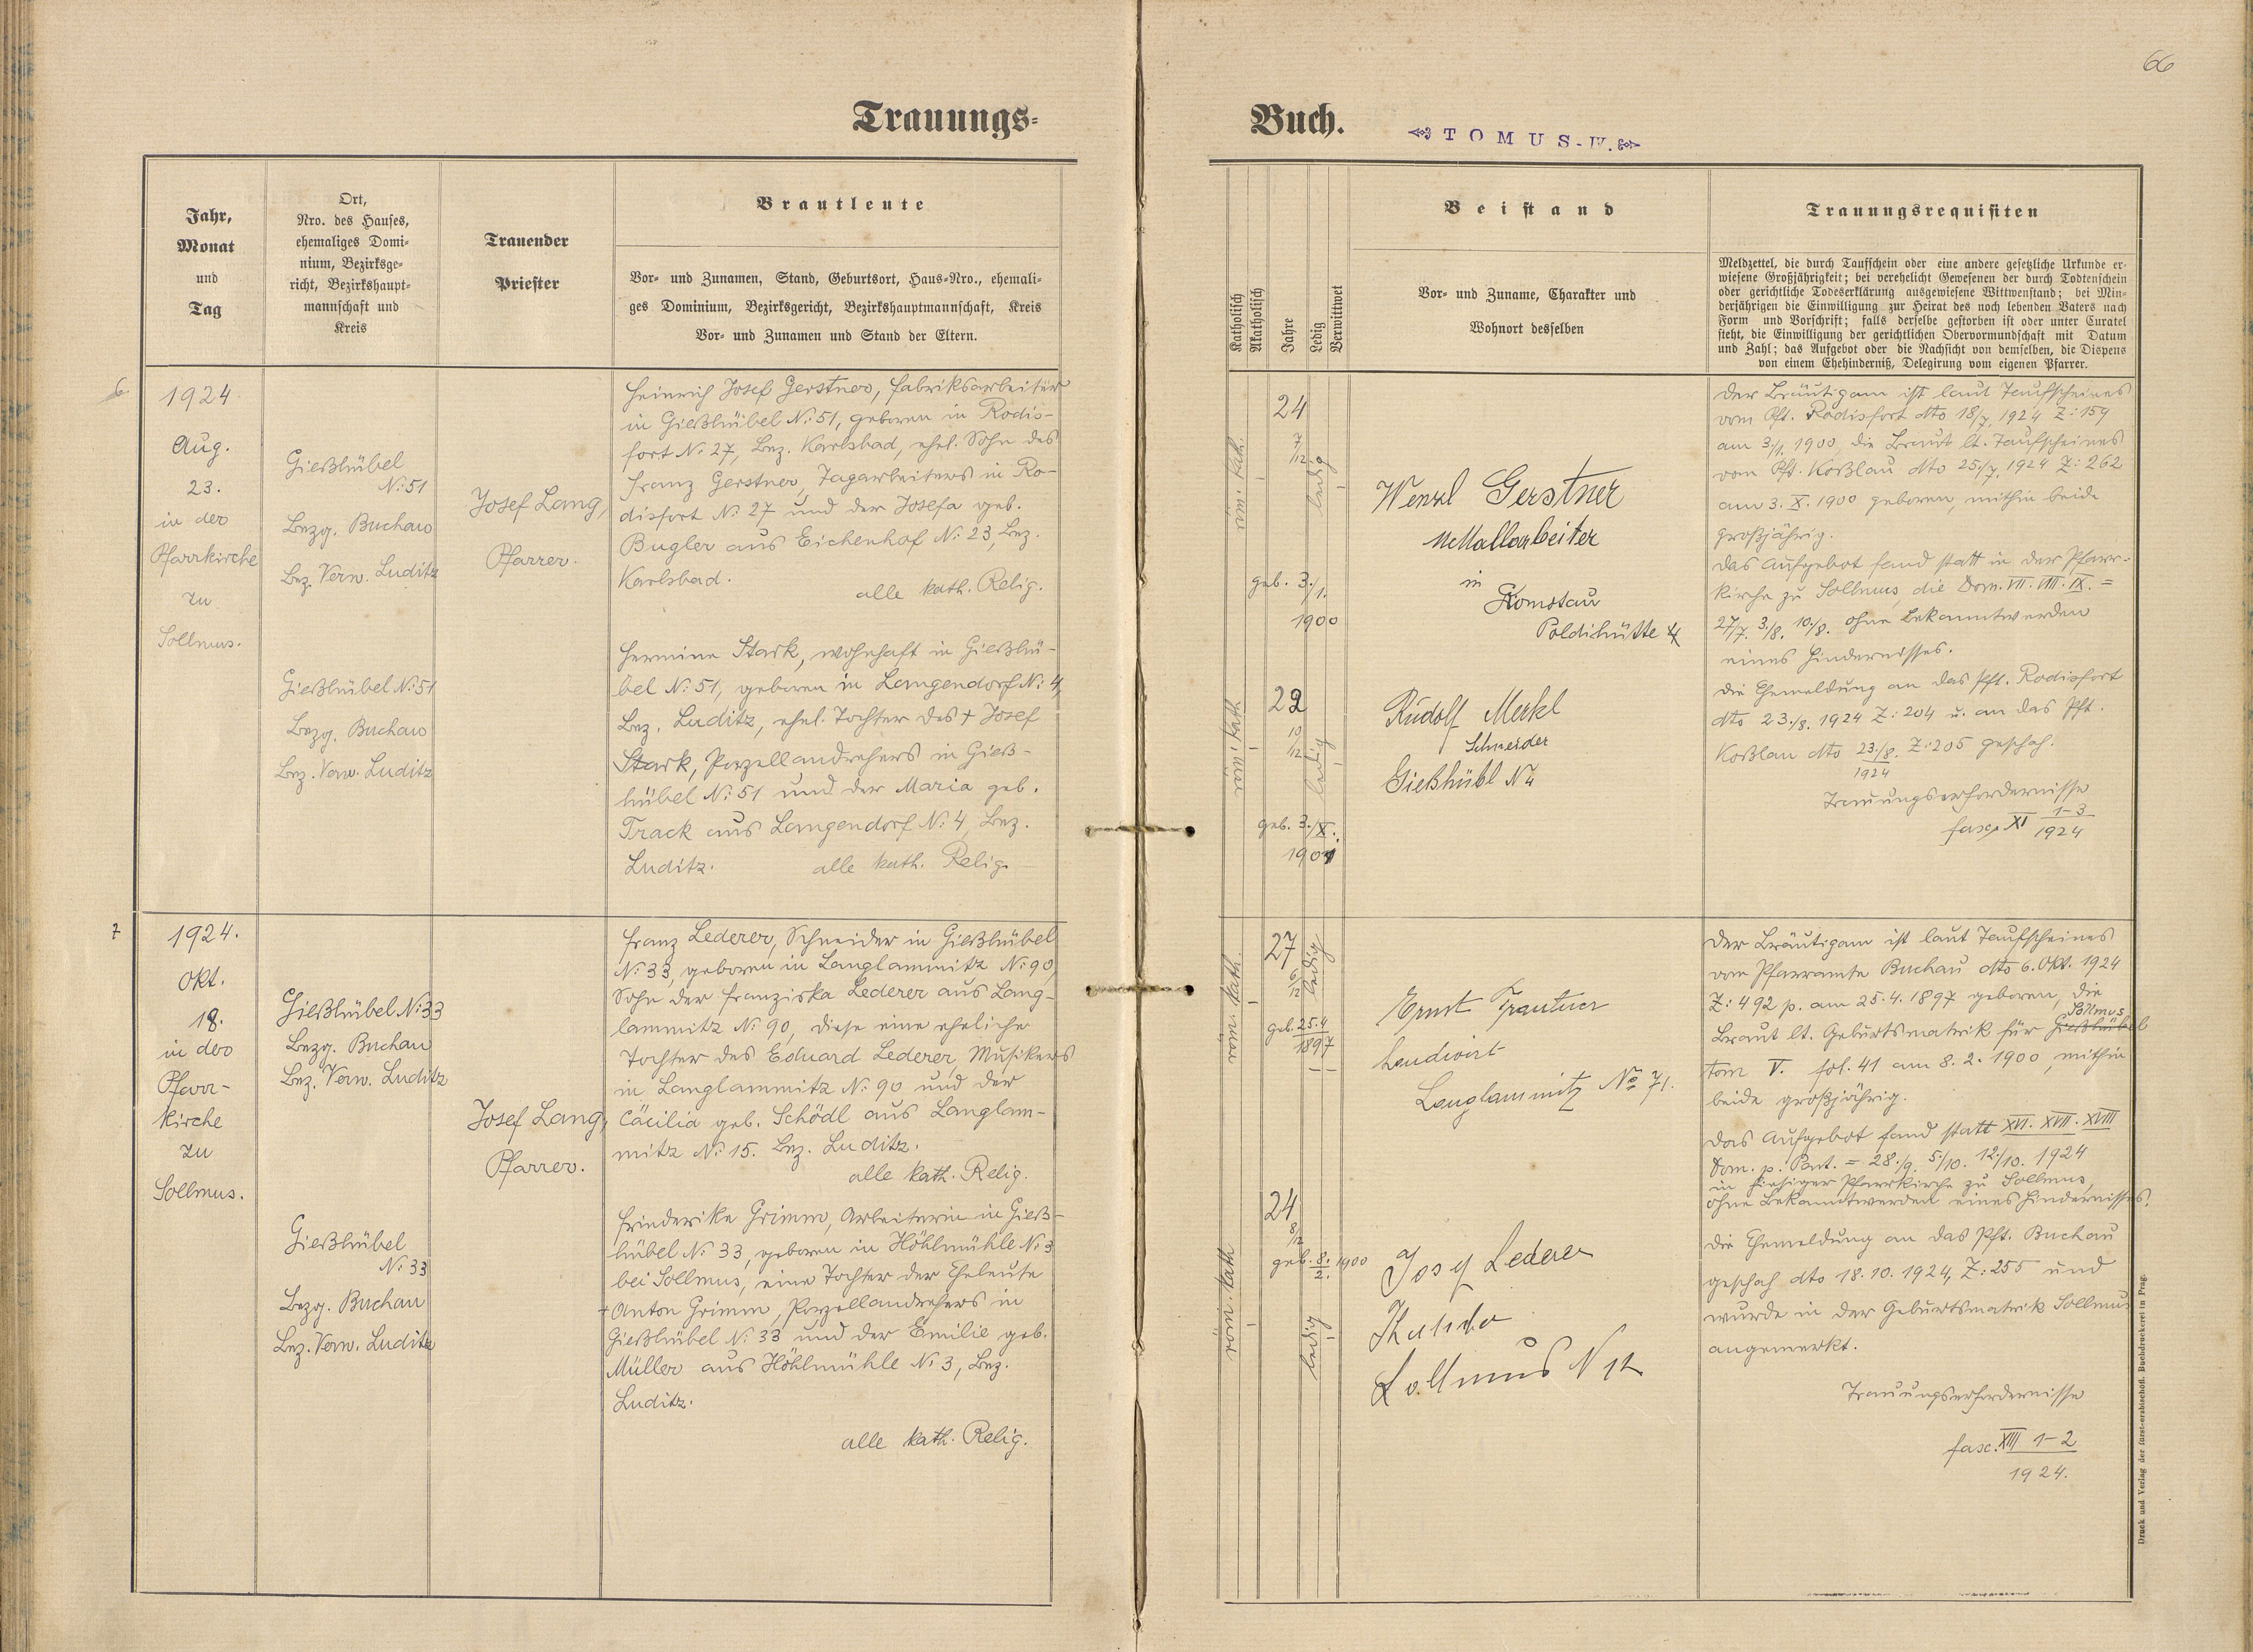 66
Trauungs-
Buch.
TOMUS-IV.
Jahr,
Monat
und
Tag
Ort,
Nro. des Hauses,
ehemaliges Domi-
nium, Bezirksge-
richt, Bezirkshaupt-
mannschaft und
Kreis
Trauender
Priester
Brautleute
Vor- und Zunamen, Stand, Geburtsort, Haus-Nro., ehemali-
ges Dominium, Bezirksgericht, Bezirkshauptmannschaft, Kreis
Vor- und Zunamen und Stand der Eltern.
Katholisch
Akatholisch
Jahre
Ledig
Verwittwet
Beistand
Vor- und Zuname, Charakter und
Wohnort desselben
Trauungsrequisiten
Meldzettel, die durch Taufschein oder eine andere gesetzliche Urkunde er-
wiesene Großjährigkeit; bei verehelicht Gewesenen der durch Todtenschein
oder gerichtliche Todeserklärung ausgewiesene Wittwenstand; bei Min-
derjährigen die Einwilligung zur Heirat des noch lebenden Vaters nach
Form und Vorschrift; falls derselbe gestorben ist oder unter Curatel
steht, die Einwilligung der gerichtlichen Obervormundschaft mit Datum
und Zahl; das Aufgebot oder die Nachsicht von demselben, die Dispens
von einem Ehehinderniß, Delegirung vom eigenen Pfarrer.
6
1924
Aug.
23.
in der
Pfarrkirche
zu
Sollmus.
Gießhübel
N: 51
Bezg. Buchau
Bez. Verw. Luditz
Gießhübel N: 51
Bezg. Buchau
Bez. Verw. Luditz
Josef Lang,
Pfarrer.
Heinrich Josef Gerstner, Fabriksarbeiter
in Gießhübel N: 51, geboren in Rodis-
fort N: 27, Bez. Karlsbad, ehel. Sohn des
Franz Gerstner, Tagarbeiters in Ro-
disfort N: 27 und der Josefa geb.
Bugler aus Eichenhof N: 23, Bez.
Karlsbad.
alle kath. Relig.
Hermine Stark, wohnhaft in Gießhü-
bel N: 51, geboren in Langendorf N: 4,
Bez. Luditz, ehel. Tochter des + Josef
Stark, Porzellandrehers in Gieß-
hübel N: 51 und der Maria geb.
Track aus Langendorf N: 4, Bez.
Luditz.
alle kath. Relig.
röm. kath.
24
7/12
ledig
geb. 3./1.
1900
röm. kath.
22
10/12
ledig
geb. 3./X.
1901
Wenzl Gerstner
Metallarbeiter
in
Komotau
Poldihütte 4
Rudolf Merkl
Schneider
Gießhübl N 4
Der Bräutigam ist laut Taufscheines
vom Pft. Rodisfort dto 18/7. 1924 Z: 159
am 3./1. 1900, die Braut lt. Taufscheines
vom Pft. Koßlau dto 25./7. 1924 Z: 262
am 3. X. 1900 geboren, mithin beide
großjährig.
Das Aufgebot fand statt in der Pfarr-
kirche zu Sollmus, die Dom. VII. VIII. IX. =
27/7. 3./8. 10./8. ohne Bekanntwerden
eines Hindernisses.
Die Ehemeldung an das Pft. Rodisfort
dto 23./8. 1924 Z: 204 u. an das Pft.
Koßlau dto 23./8. 1924 Z: 205 geschah.
Trauungserfordernisse
fasc. XI 1-3
1924
7
1924.
Okt.
18.
in der
Pfarr-
kirche
zu
Sollmus.
Gießhübel N: 33
Bezg. Buchau
Bez. Verw. Luditz
Gießhübel
N: 33
Bezg. Buchau
Bez. Verw. Luditz
Josef Lang,
Pfarrer.
Franz Lederer, Schneider in Gießhübel
N: 33, geboren in Langlammitz N: 90,
Sohn der Franziska Lederer aus Lang-
lammitz N: 90, diese eine eheliche
Tochter des Eduard Lederer, Musikers
in Langlammitz N: 90 und der
Cäcilia geb. Schödl aus Langlam-
mitz N: 15. Bez. Luditz.
alle kath. Relig.
Friederike Grimm, Arbeiterin in Gieß-
hübel N: 33, geboren in Höhlmühle N: 3
bei Sollmus, eine Tochter der Eheleute
+ Anton Grimm, Porzellandrehers in
Gießhübel N: 33 und der Emilie geb.
Müller aus Höhlmühle N: 3, Bez.
Luditz.
alle kath. Relig.
röm. kath.
27
6/12
ledig
geb. 25.4
1897
röm. kath.
24
8/12
geb. 8./2. 1900
ledig
Ernst Trautner
Landwirt
Langlammitz No 71.
Josef Lederer
Sollmus N 12
Der Bräutigam ist laut Taufscheines
vom Pfarramte Buchau dto 6. Okt. 1924
Z: 492 p. am 25.4.1897 geboren, die
Sollmus
Braut lt. Geburtsmatrik für Gießhübel
tom V. fol. 41 am 8.2.1900, mithin
beide großjährig.
Das Aufgebot fand statt XVI. XVII. XVIII
Dom. p. Pent. = 28./9. 5/10. 12./10. 1924
in hiesiger Pfarrkirche zu Sollmus,
ohne Bekanntwerden eines Hindernisses.
Die Ehemeldung an das Pft. Buchau
geschah dto 18.10.1924, Z: 255 und
wurde in der Geburtsmatrik Sollmus
angemerkt.
Trauungserfordernisse
fasc. XIII 1-2
1924.
Druck und Verlag der fürst-erzbischöfl. Buchdruckerei in Prag.